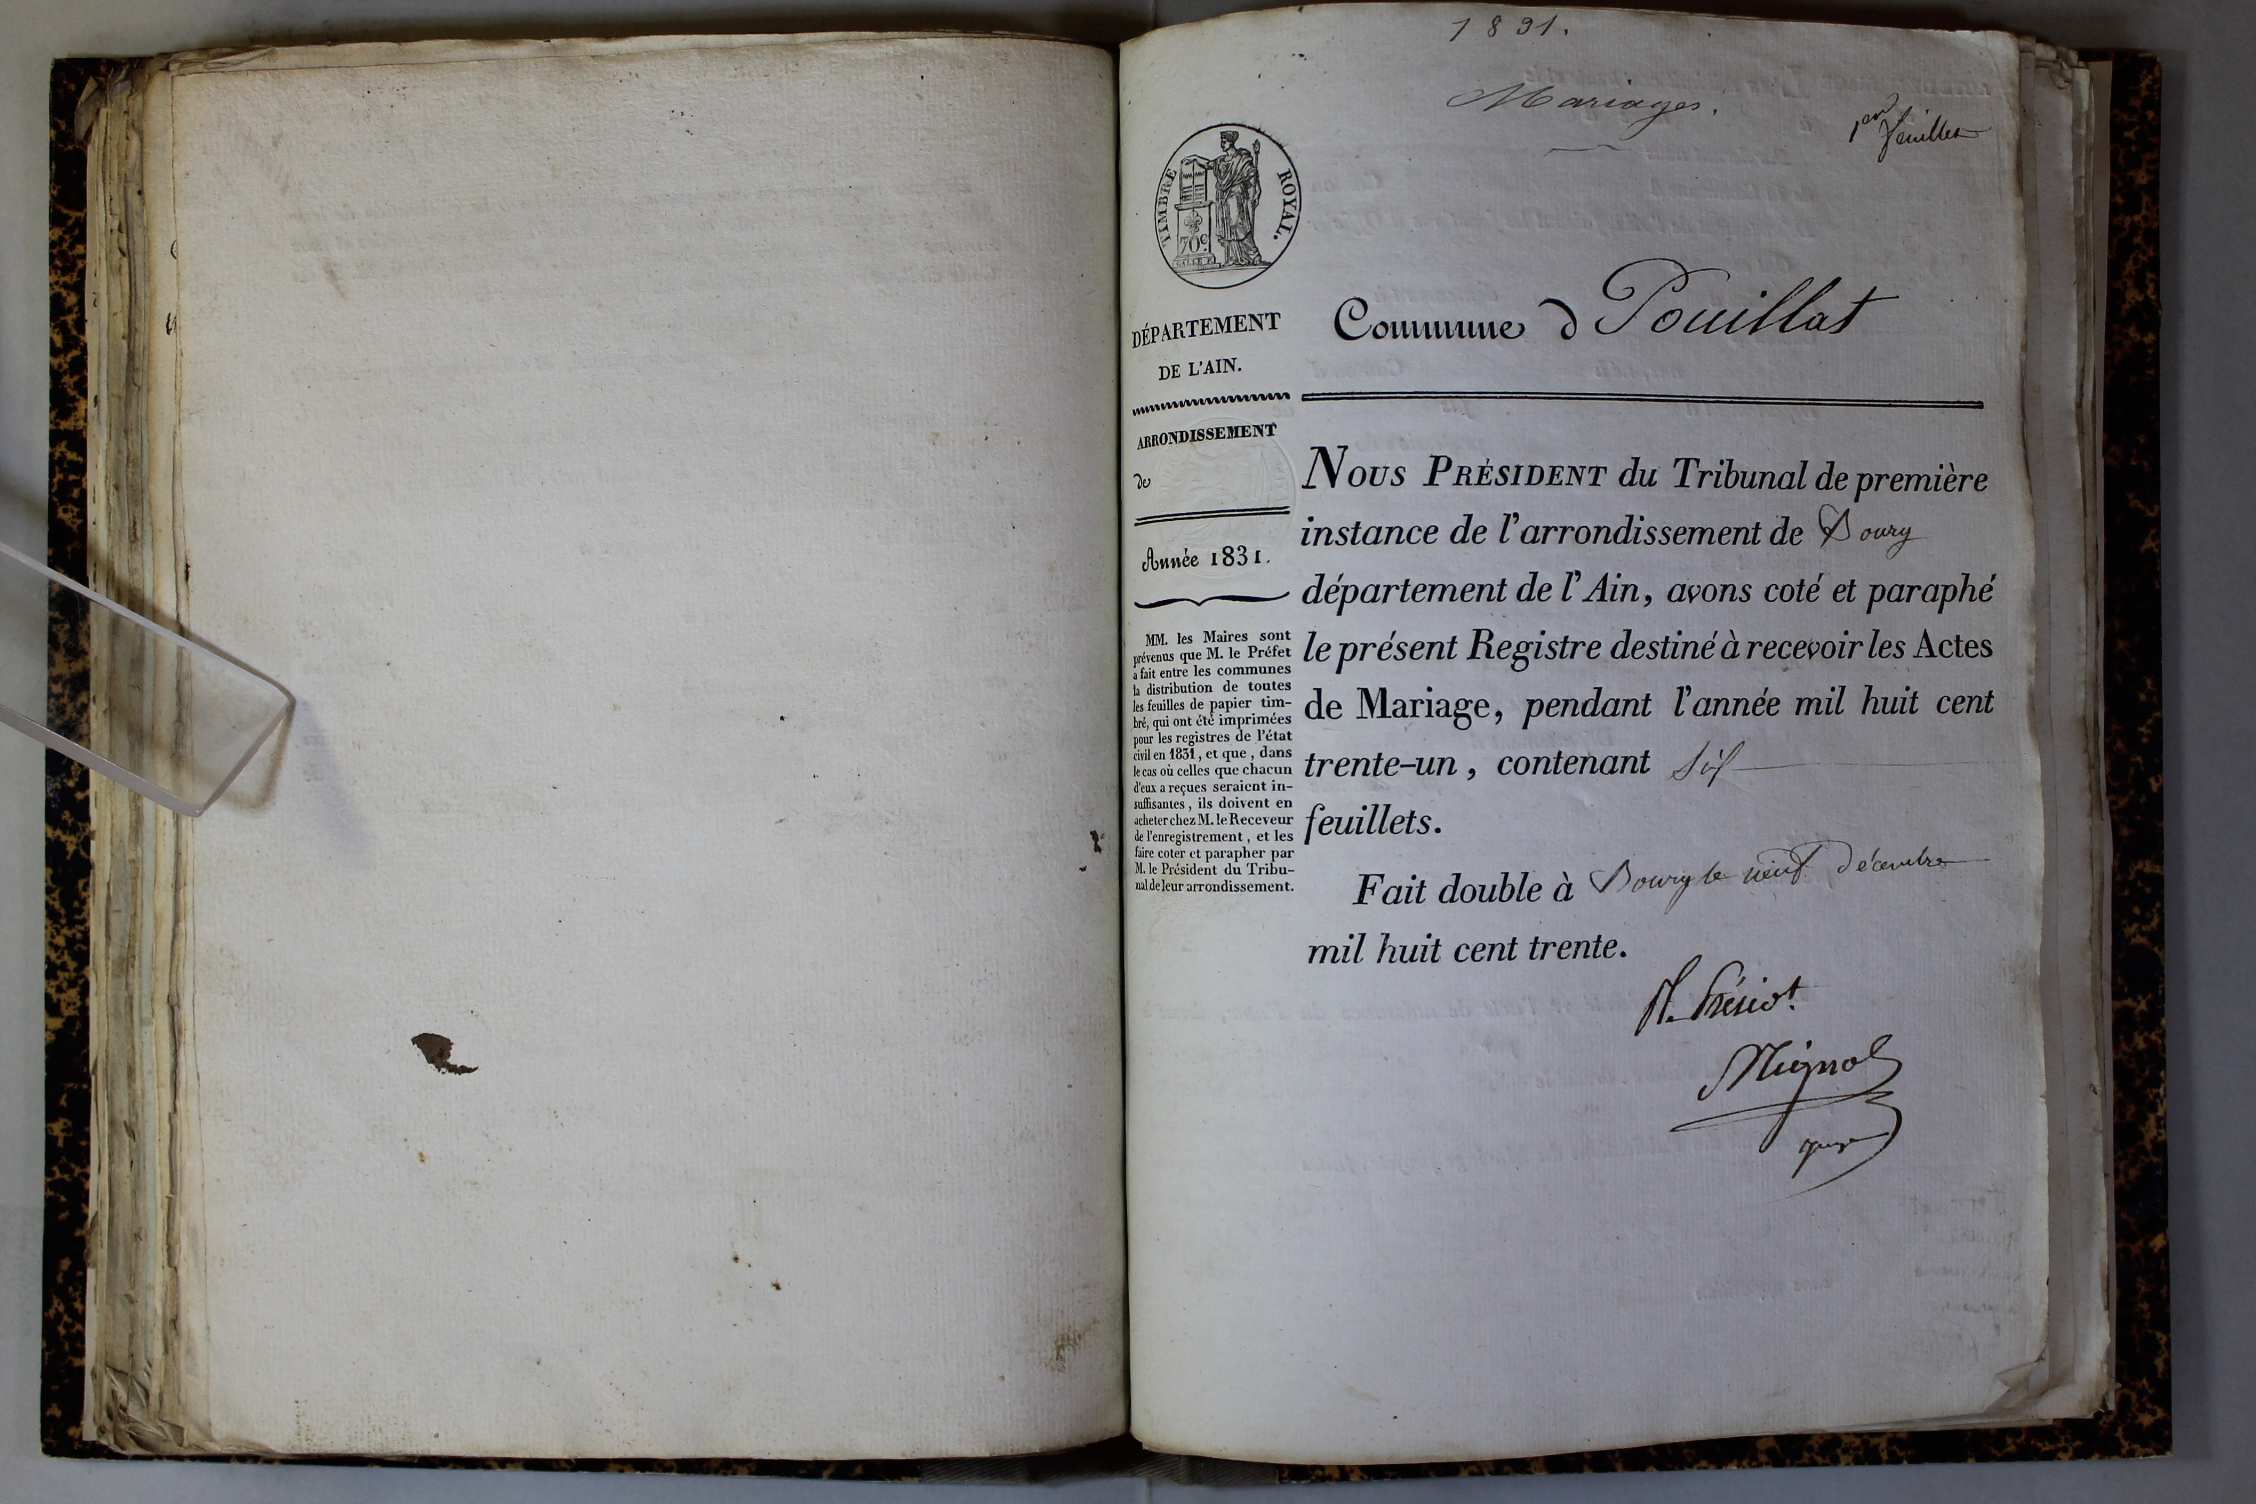 1831.
Mariages.
1er feuillet
TIMBRE ROYAL.
70c.
DÉPARTEMENT
DE L'AIN.
ARRONDISSEMENT
de
Année 1831.
MM. les Maires sont
prévenus que M. le Préfet
a fait entre les communes
la distribution de toutes
les feuilles de papier tim-
bré, qui ont été imprimées
pour les registres de l'état
civil en 1831, et que, dans
le cas où celles que chacun
d'eux a reçues seraient in-
suffisantes, ils doivent en
acheter chez M. le Receveur
de l'enregistrement, et les
faire coter et parapher par
M. le Président du Tribu-
nal de leur arrondissement.
Commune d Pouillat
NOUS PRÉSIDENT du Tribunal de première
instance de l'arrondissement de Bourg
département de l'Ain, avons coté et paraphé
le présent Registre destiné à recevoir les Actes
de Mariage, pendant l'année mil huit cent
trente-un, contenant six
feuillets.
Fait double à Bourg le neuf décembre
mil huit cent trente.